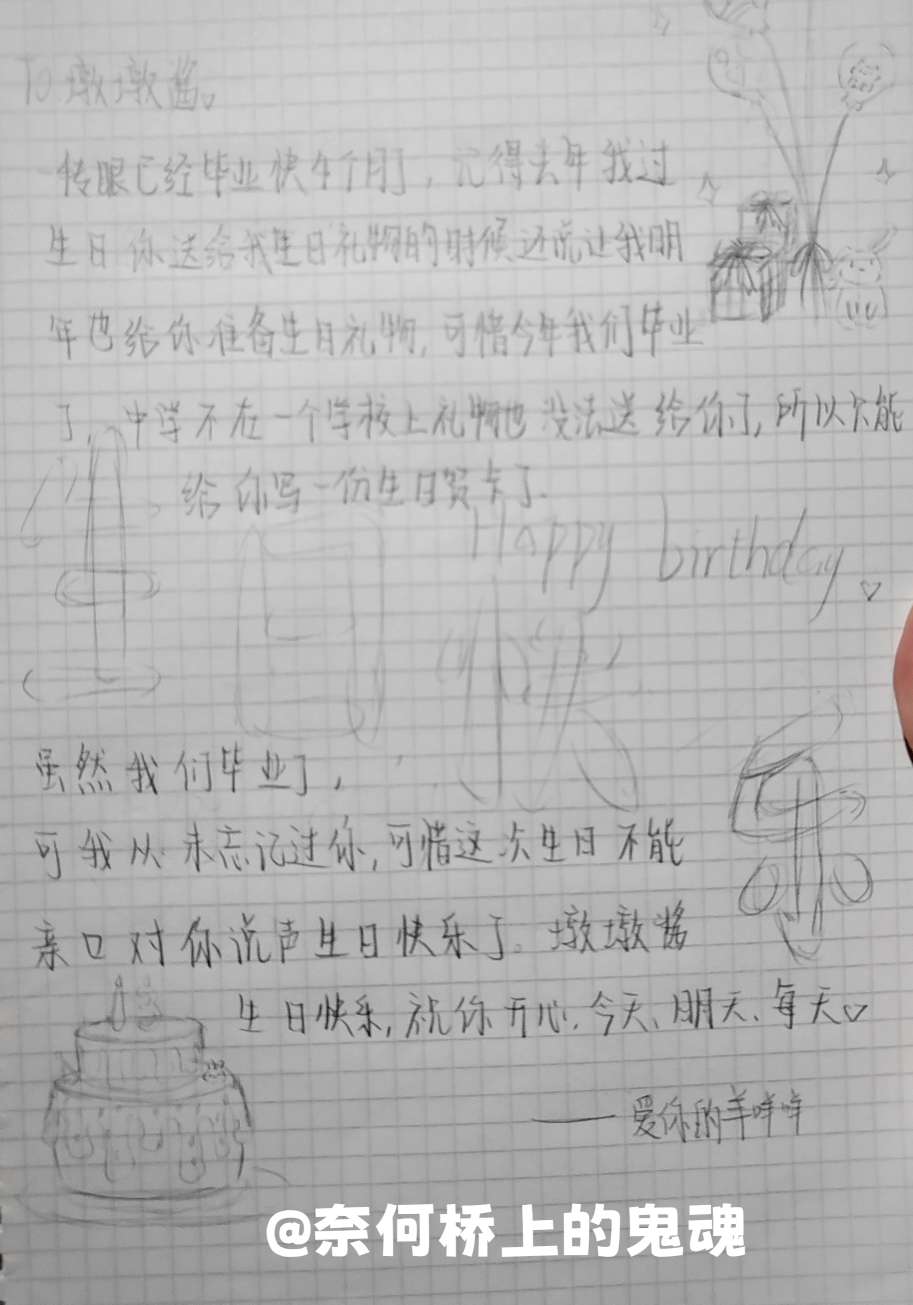 To 墩墩酱♡
一转眼已经毕业快4个月了，记得去年我过
生日你送给我生日礼物的时候还说让我明
年也给你准备生日礼物，可惜今年我们毕业
了，中学不在一个学校上礼物也没法送给你了，所以只能
给你写一份生日贺卡了.
Happy birthday ♡
生日快乐
虽然我们毕业了，
可我从未忘记过你，可惜这次生日不能
亲口对你说声生日快乐了。墩墩酱
生日快乐，祝你开心，今天、明天、每天♡
——爱你的羊咩咩
@奈何桥上的鬼魂